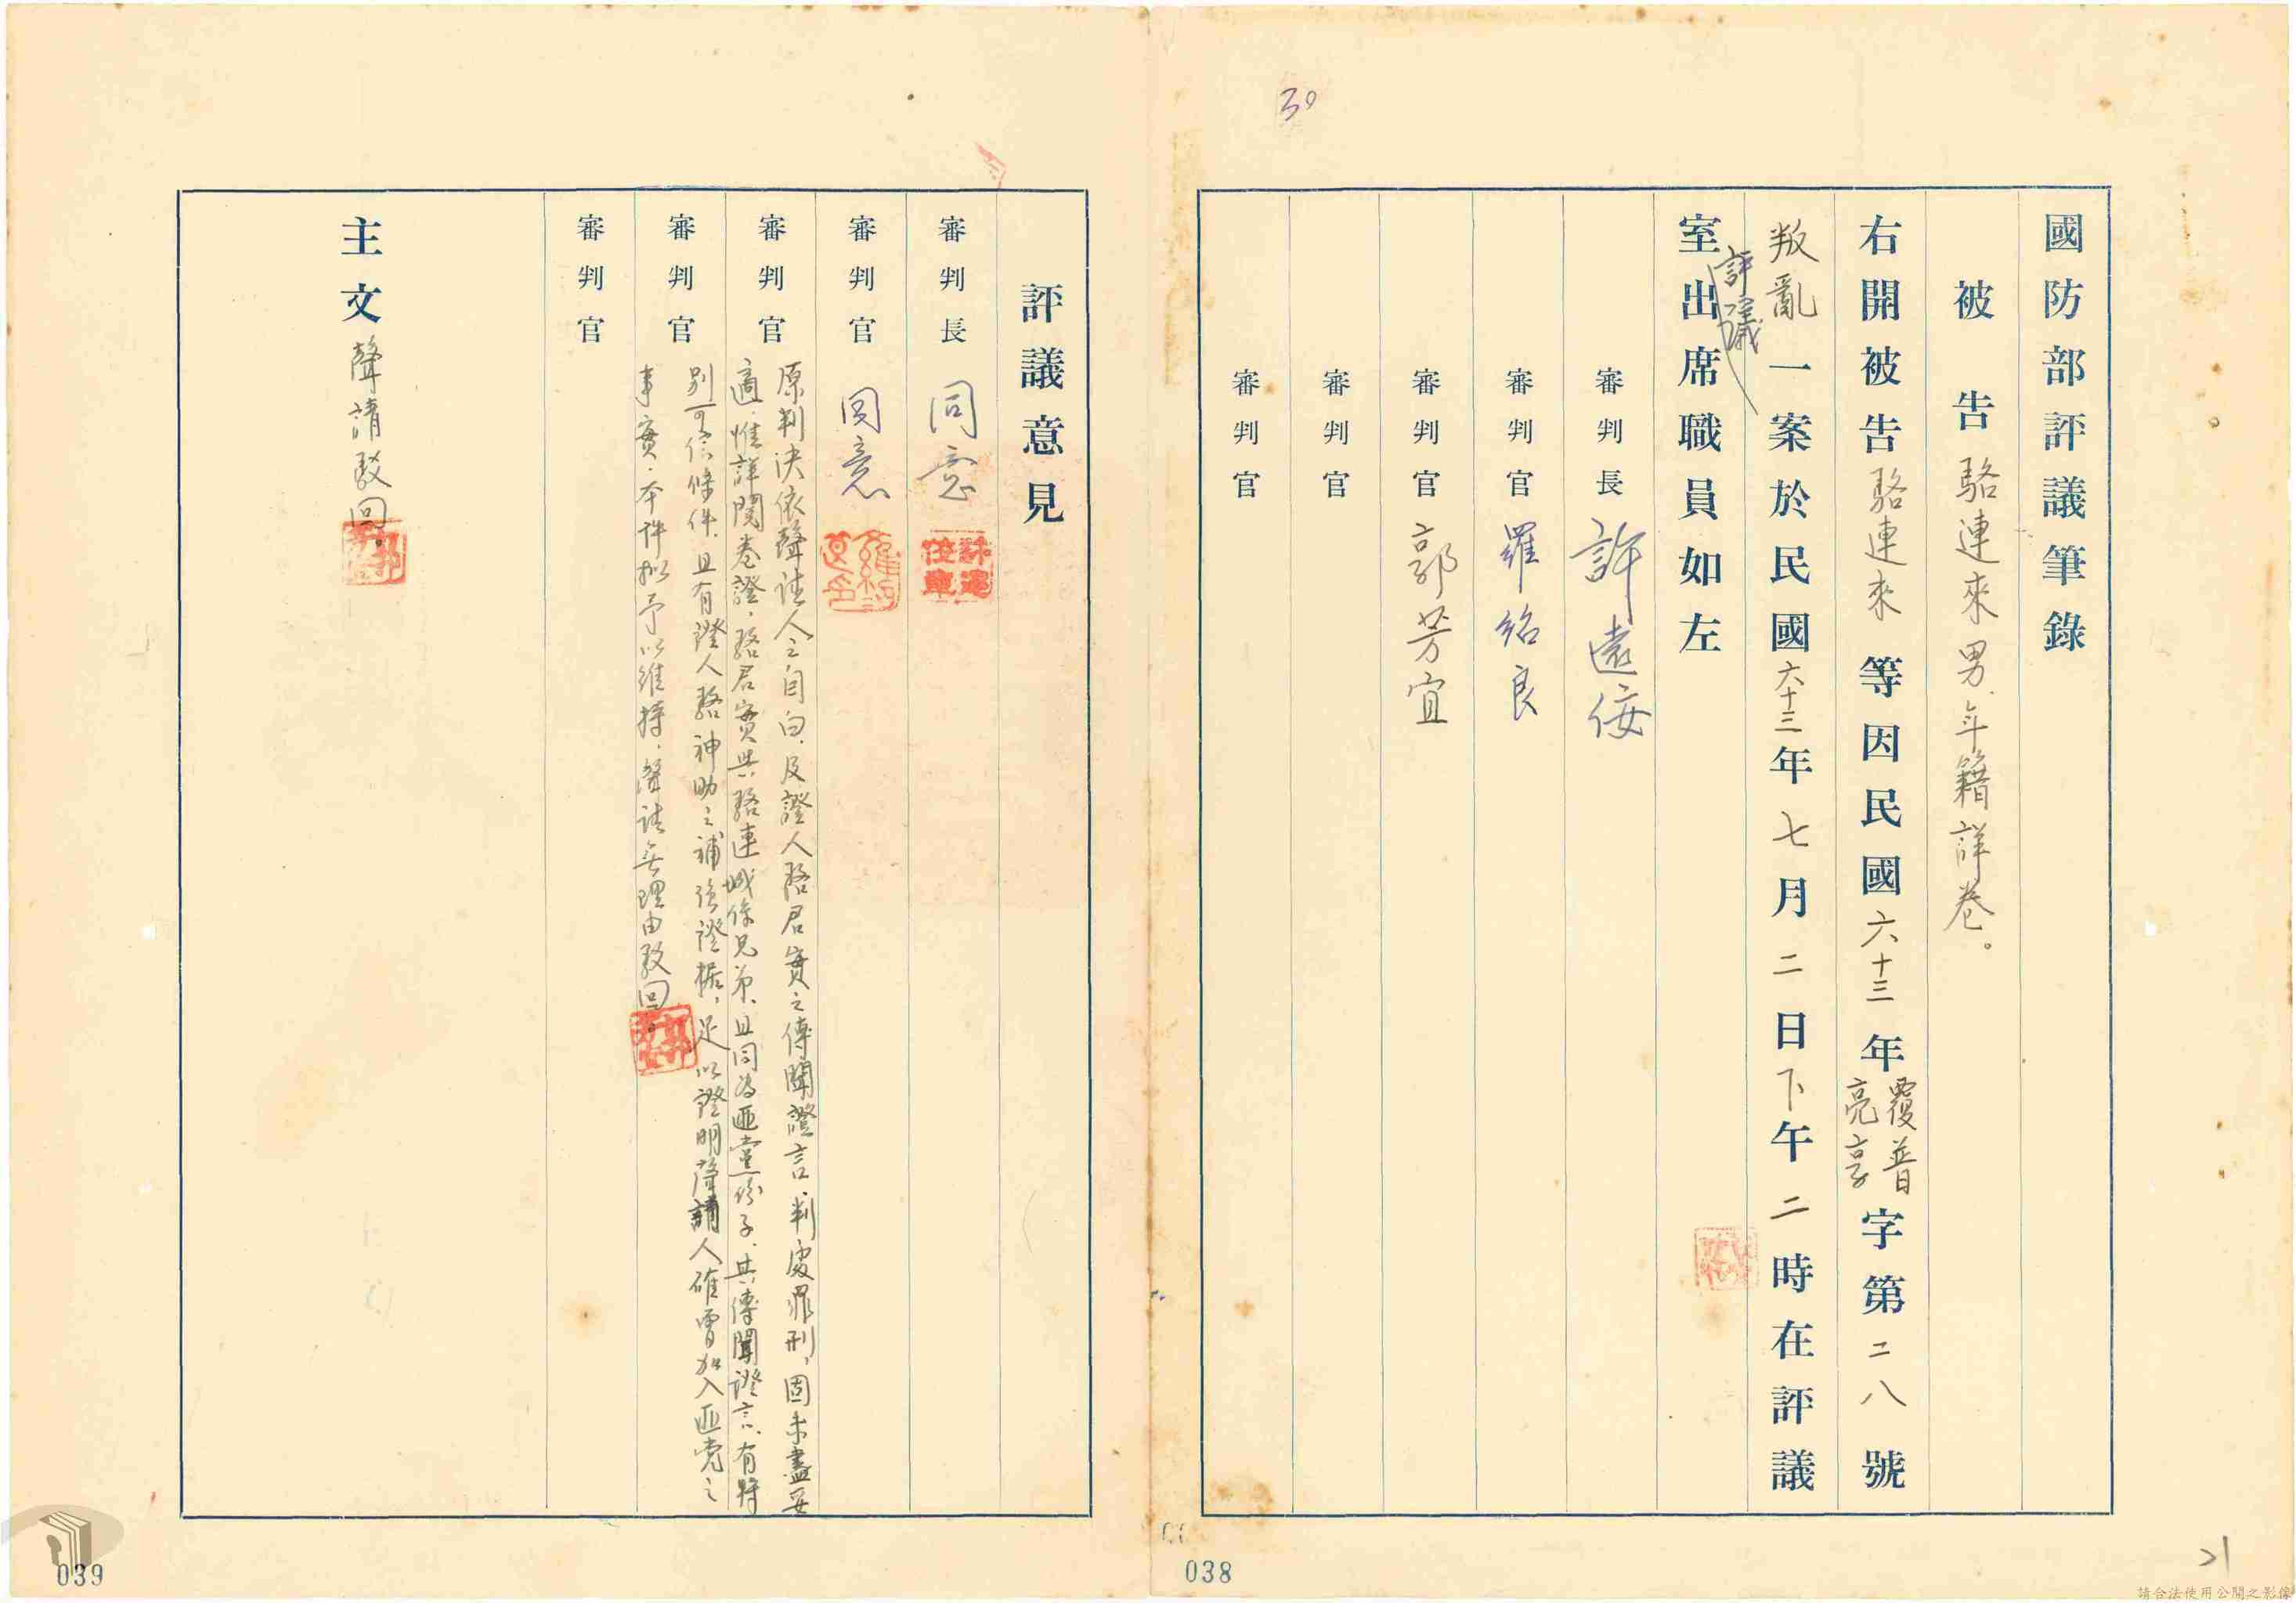 30
國防部評議筆錄
被告 駱連來 男、年籍詳卷。
右開被告駱連來 等因民國六十三年覆普亮享字第二八號
叛亂一案於民國六十三年七月二日下午二時在評議
評議
室出席職員如左
審判長 許遠
審判官 羅紹良
審判官 郭芳宜
審判官
審判官
038
21
評議意見
審判長 同意
審判官 同意
審判官 原判決依聲請人之自白、及證人駱君實之傳聞證言、判處罪刑,固未盡妥
適、惟詳閱卷證,駱君實與駱連城係兄弟、且同為匪黨份子、其傳聞證言、有特
審判官 別可信條件、且有證人駱神助之補強證據,足以證明聲請人確曾加入匪党之
事實、本件擬予以維持、聲請無理由駁回。
審判官
主文 聲請駁回。
039
請合法使用公開之影像